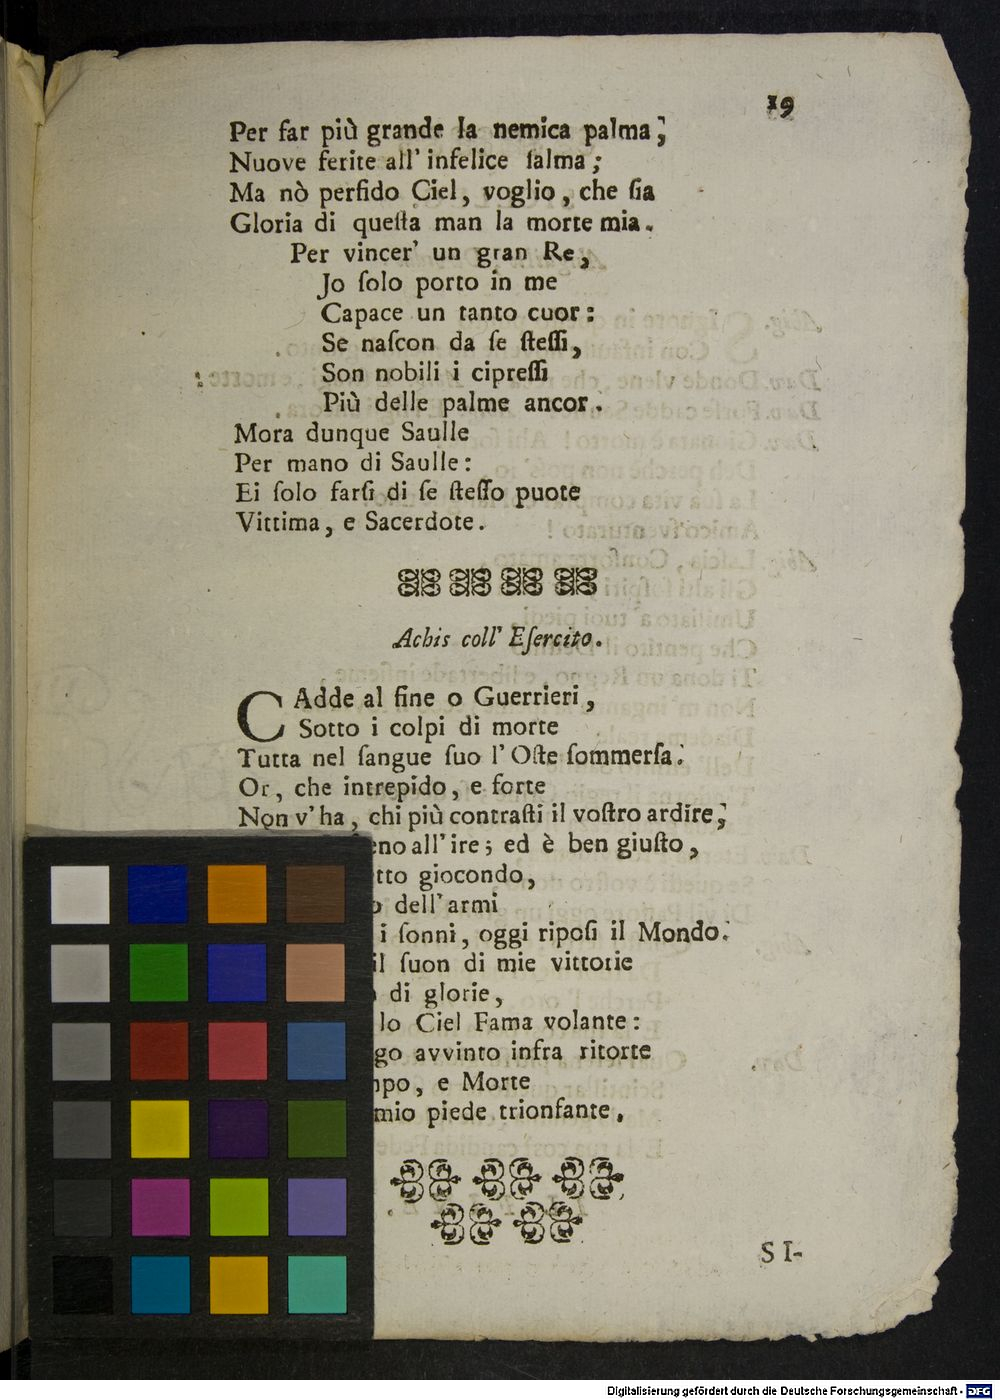 19
Per far più grande la nemica palma;
Nuove ferite all' infelice ſalma;
Ma nò perfido Ciel, voglio, che ſia
Gloria di queſta man la morte mia.
Per vincer' un gran Re,
Jo ſolo porto in me
Capace un tanto cuor:
Se naſcon da ſe ſteſſi,
Son nobili i cipreſſi
Più delle palme ancor.
Mora dunque Saulle
Per mano di Saulle:
Ei ſolo farſi di ſe ſteſſo puote
Vittima, e Sacerdote.
Achis coll' Eſercito.
CAdde al fine o Guerrieri,
Sotto i colpi di morte
Tutta nel ſangue ſuo l' Oſte ſommerſa.
Or, che intrepido, e forte
Non v' ha, chi più contraſti il voſtro ardire;
all' ire; ed è ben giuſto,
giocondo,
dell' armi
i ſonni, oggi ripoſi il Mondo.
il ſuon di mie vittorie
di glorie,
lo Ciel Fama volante:
avvinto infra ritorte
e Morte
mio piede trionfante.
SI-
Digitalisierung gefördert durch die Deutsche Forschungsgemeinschaft - DFG